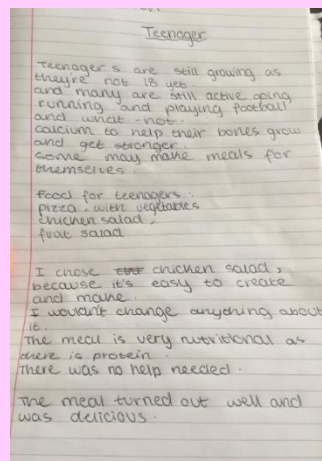 Teenager
Teenager s are still growing as
they're not 18 yet
and many are still active going
running and playing football
and what -not.
calcium to help their bones grow
and get stronger.
some may make meals for
themselves.
food for teenagers.
pizza, with vegetables
chicken salad,
fruit salad
I chose chicken salad,
because it's easy to create
and make.
I wouldn't change anything about
it.
The meal is very nutritional as
there is protein.
There was no help needed.
The meal turned out well and
was delicious.